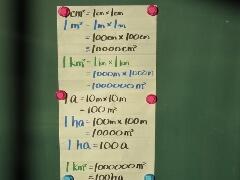 1cm² = 1cm×1cm
1 m² = 1m×1m
= 100cm×100cm
= 10000cm²
1 km² = 1km×1km
= 1000m×1000m
= 1000000m²
1a = 10m×10m
= 100m²
1 ha = 100m×100m
= 10000m²
1 ha = 100a
1km² = 1000000m²
= 100ha